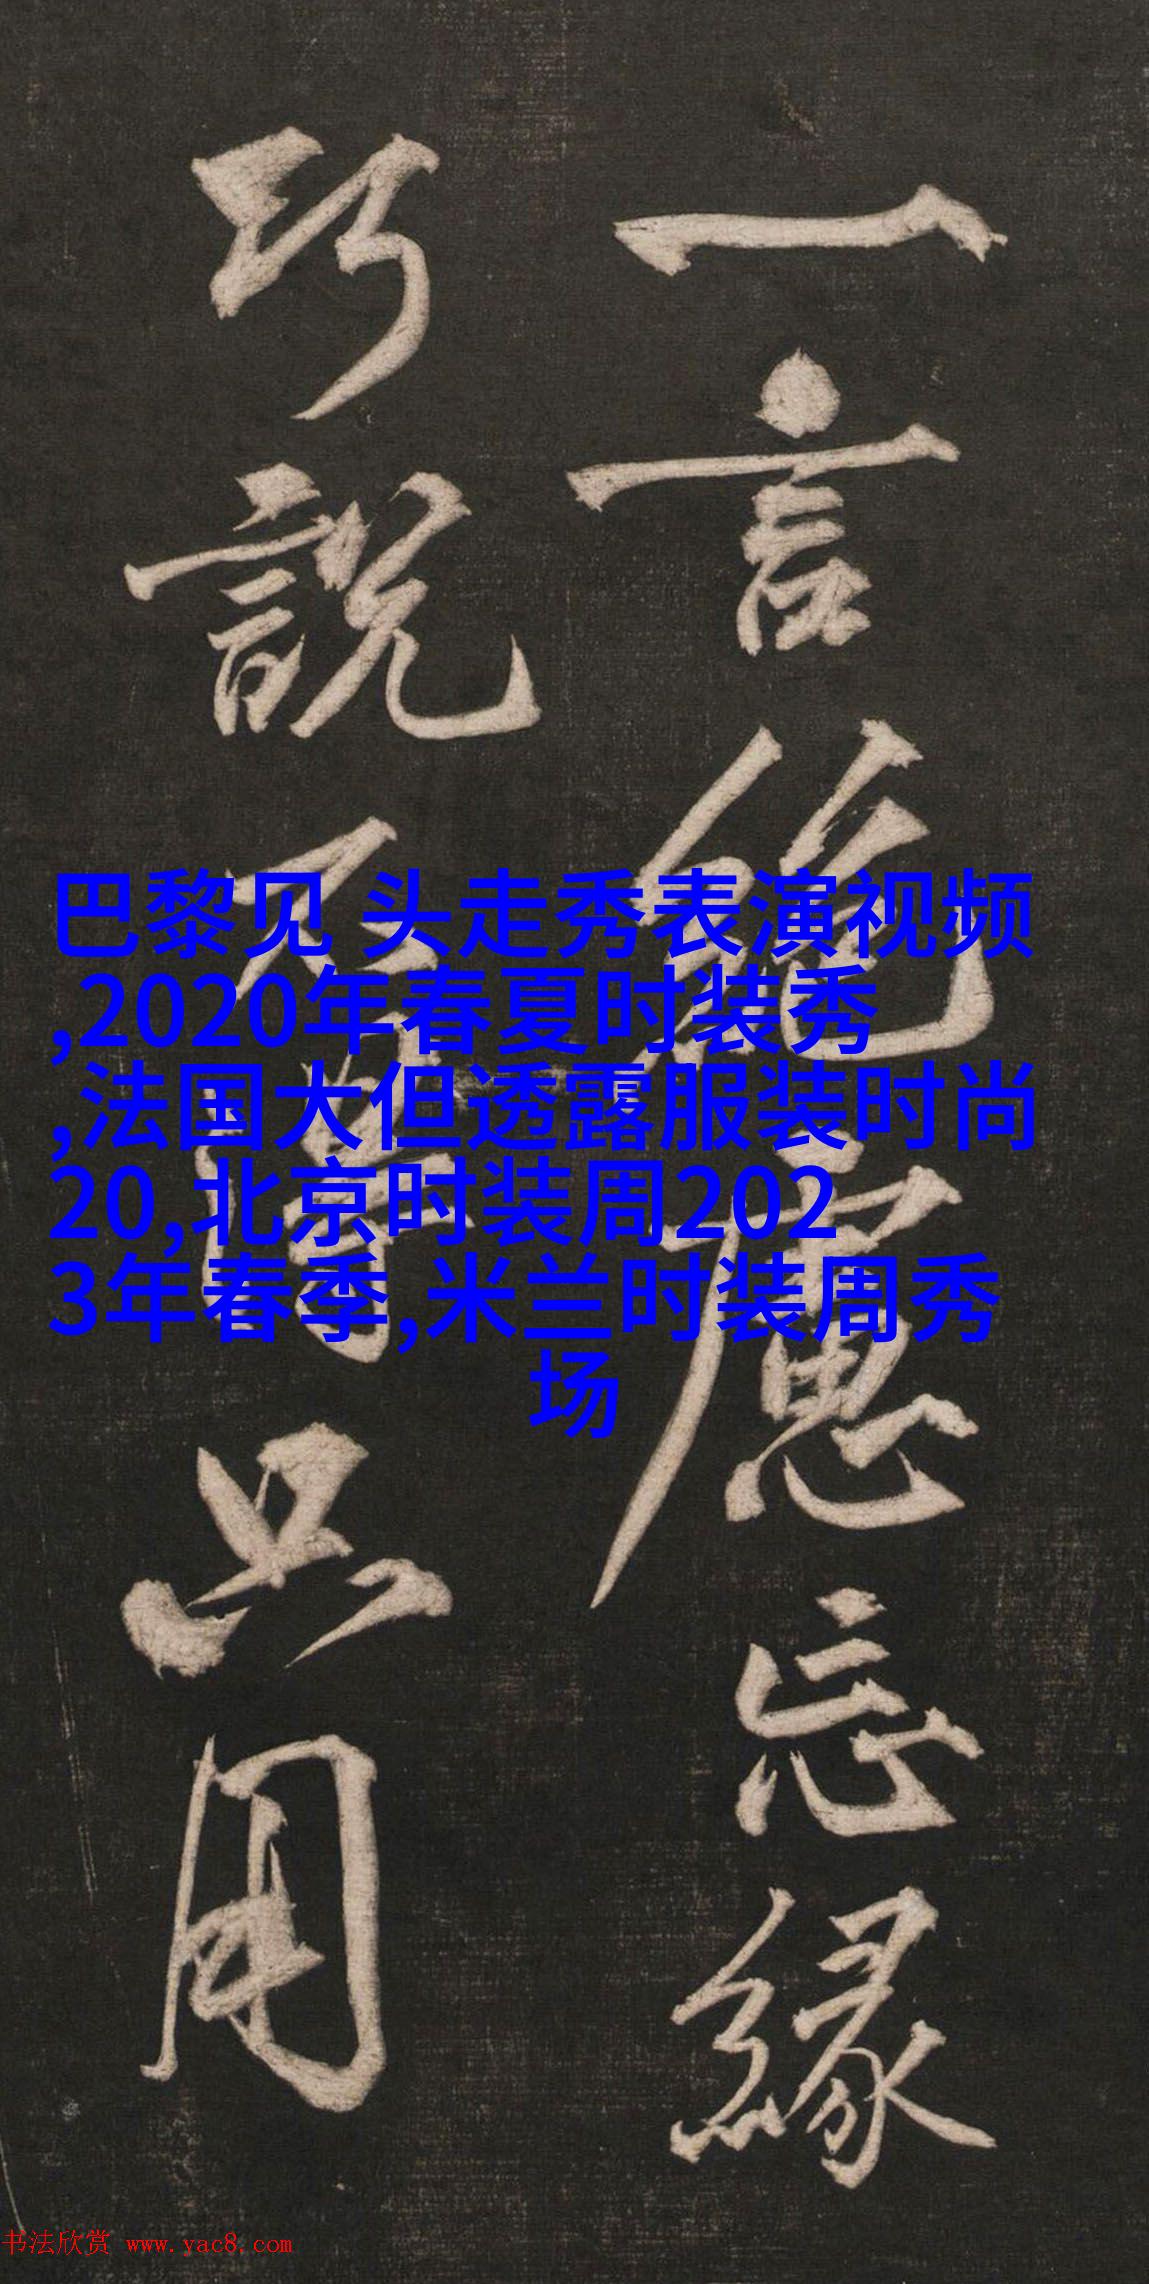 一言絶慮忘緣
巧說不得只用
巴黎见 头走秀表演视频
,2020年春夏时装秀
,法国大但透露服装时尚
20,北京时装周202
3年春季,米兰时装周秀
场
书法欣赏 www.yac8.com